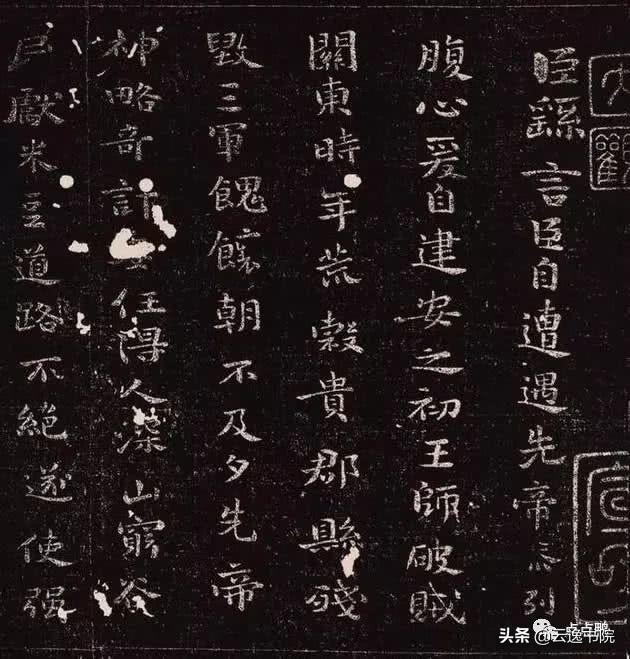 大觀
臣繇言臣自遭遇先帝忝列
腹心爰自建安之初王師破賊
關東時年荒穀貴郡縣殘
毀三軍餽饟朝不及夕先帝
神略奇計任得人深山窮谷
民獻米豆道路不絕遂使强
点点鹏
头条 @云逸书院